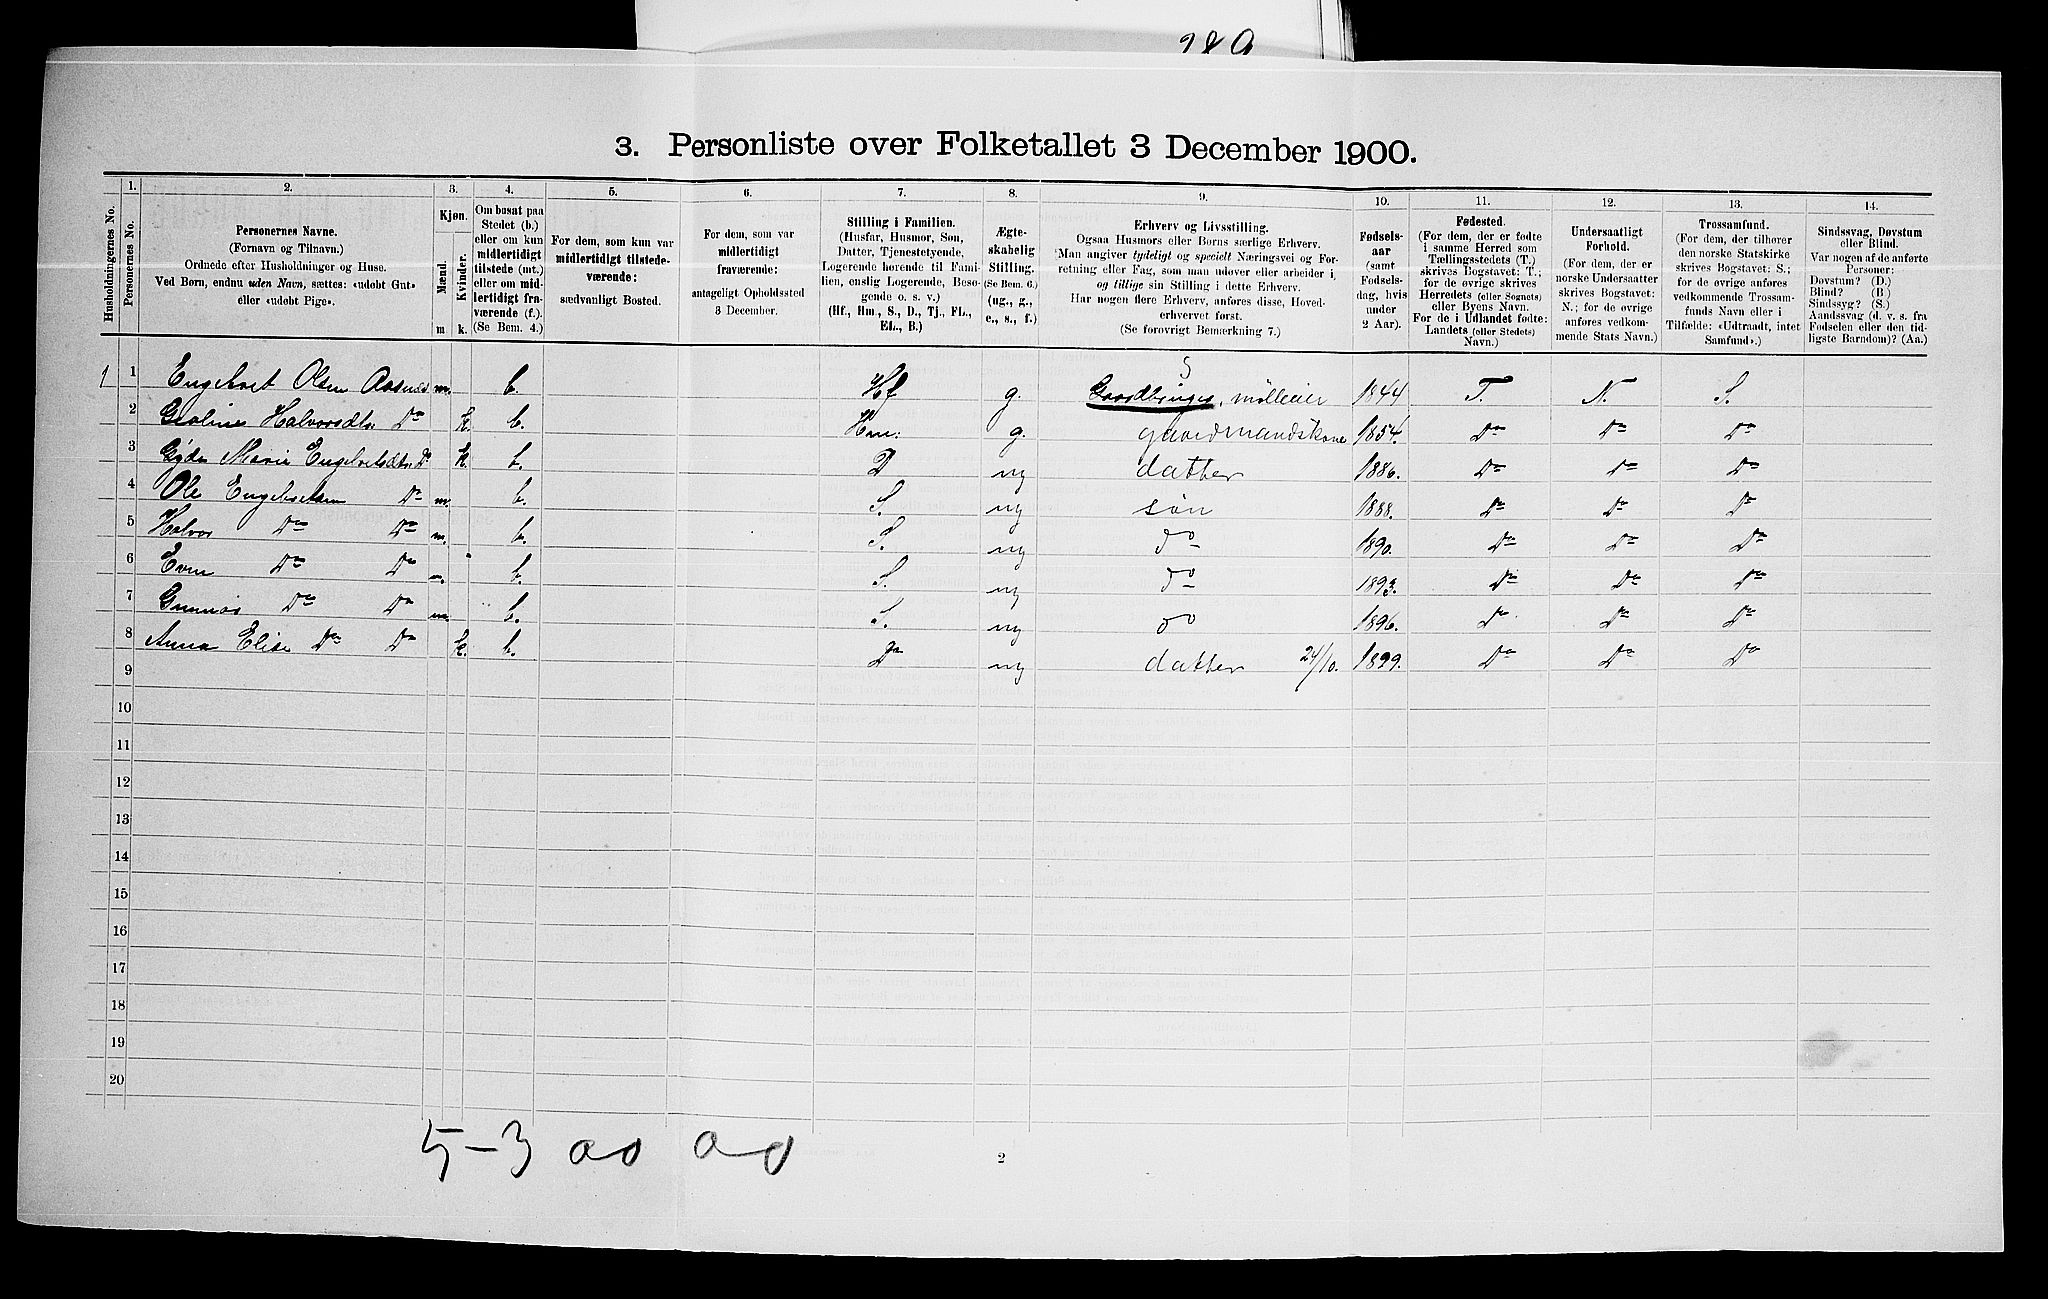 3. Personliste over Folketallet 3 December 1900.
1. 2. 3. 4. 5. 6. 7. 8. 9. 10. 11. 12. 13. 14.
Husholdningernes No.
Personernes No.
Personernes Navne.
(Fornavn og Tilnavn.)
Ordnede efter Husholdninger og Huse.
Ved Børn, endnu uden Navn, sættes: «udøbt Gut»
eller «udøbt Pige».
Kjøn.
Mænd.
Kvinder.
m k.
Om bosat paa
Stedet (b.)
eller om kun
midlertidigt
tilstede (mt.)
eller om mid-
lertidigt fra-
værende (f.).
(Se Bem. 4.)
For dem, som kun var
midlertidigt tilstede-
værende:
sædvanligt Bosted.
For dem, som var
midlertidigt
fraværende:
antageligt Opholdssted
3 December.
Stilling i Familien.
(Husfar, Husmor, Søn,
Datter, Tjenestetyende,
Logerende hørende til Fami-
lien, enslig Logerende, Besø-
gende o. s. v.)
(Hf., Hm., S., D., Tj., FL.,
EL., B.)
Ægte-
skabelig
Stilling.
(Se Bem. 6.)
(ug., g.,
e., s., f.)
Erhverv og Livsstilling.
Ogsaa Husmors eller Børns særlige Erhverv.
Man angiver tydeligt og specielt Næringsvei og For-
retning eller Fag, som man udøver eller arbeider i,
og tillige sin Stilling i dette Erhverv.
Har nogen flere Erhverv, anføres disse, Hoved-
erhvervet først.
(Se forøvrigt Bemærkning 7.)
Fødsels-
aar
(samt
Fødsels-
dag, hvis
under
2 Aar).
Fødested.
(For dem, der er fødte
i samme Herred som
Tællingsstedets (T.)
skrives Bogstavet: T.;
for de øvrige skrives
Herredets (eller Sognets)
eller Byens Navn.
For de i Udlandet fødte:
Landets (eller Stedets)
Navn.)
Undersaatligt
Forhold.
(For dem, der er
norske Undersaatter
skrives Bogstavet:
N.; for de øvrige
anføres vedkom-
mende Stats Navn.)
Trossamfund.
(For dem, der tilhører
den norske Statskirke
skrives Bogstavet: S.;
for de øvrige anføres
vedkommende Trossam-
funds Navn eller i
Tilfælde: «Udtraadt, intet
Samfund».)
Sindssvag, Døvstum
eller Blind.
Var nogen af de anførte
Personer:
Døvstum? (D.)
Blind? (B)
Sindssyg? (S.)
Aandssvag (d. v. s. fra
Fødselen eller den tid-
ligste Barndom)? (Aa.)
1 1 Engebret Olsen m. b. Hf g. Gaardbruger, mølleier 1844 T. N. S.
2 Halvorsdtr Do k. b. Hm. g. gaardmandskone 1854. Do Do Do
3 Marie Engebretsdtr D k. b. D ug datter 1886. Do Do Do
4 Ole Engebretsen Do m. b. S. ug søn 1888. Do Do Do
5 Halvor Do Do m. b. S. ug do 1890. Do Do Do
6 Even Do Do m. b. S. ug do 1893. Do Do Do
7 Gunnar Do Do m. b. S. ug do 1896. Do Do Do
8 Anna Elise Do Do k. b. D ug datter 24/10. 1899. Do Do Do
9
10
11
12
13
14
15
16
17
18
19
20
5-3 00 00
2